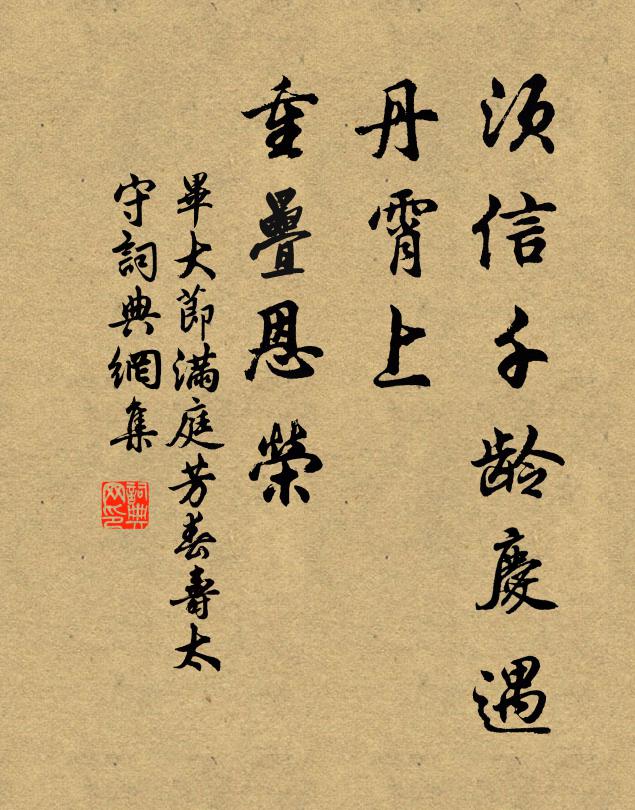 須信千齡慶遇
丹霄上
重疊恩榮
畢大節滿庭芳壽壽太
守詞典網集
詞典
网印